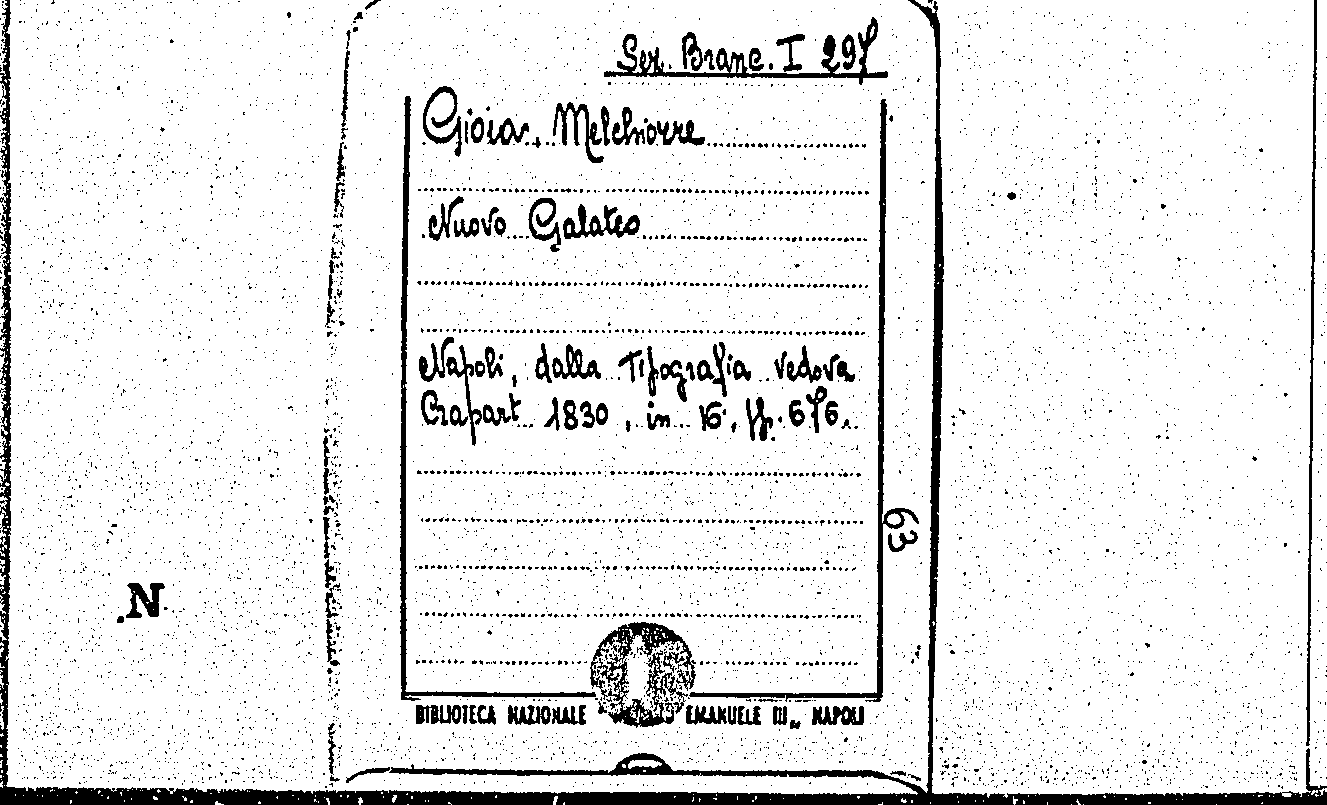 Sez. Branc. I 297
Gioia, Melchiorre
Nuovo Galateo
Napoli, dalla Tipografia vedova
Crapart 1830, in 16°, pp. 676.
63
N
BIBLIOTECA NAZIONALE " EMANUELE III„ NAPOLI